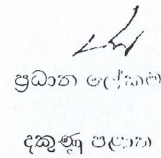 ප්‍රධාන ලේකම්
දකුණු පළාත